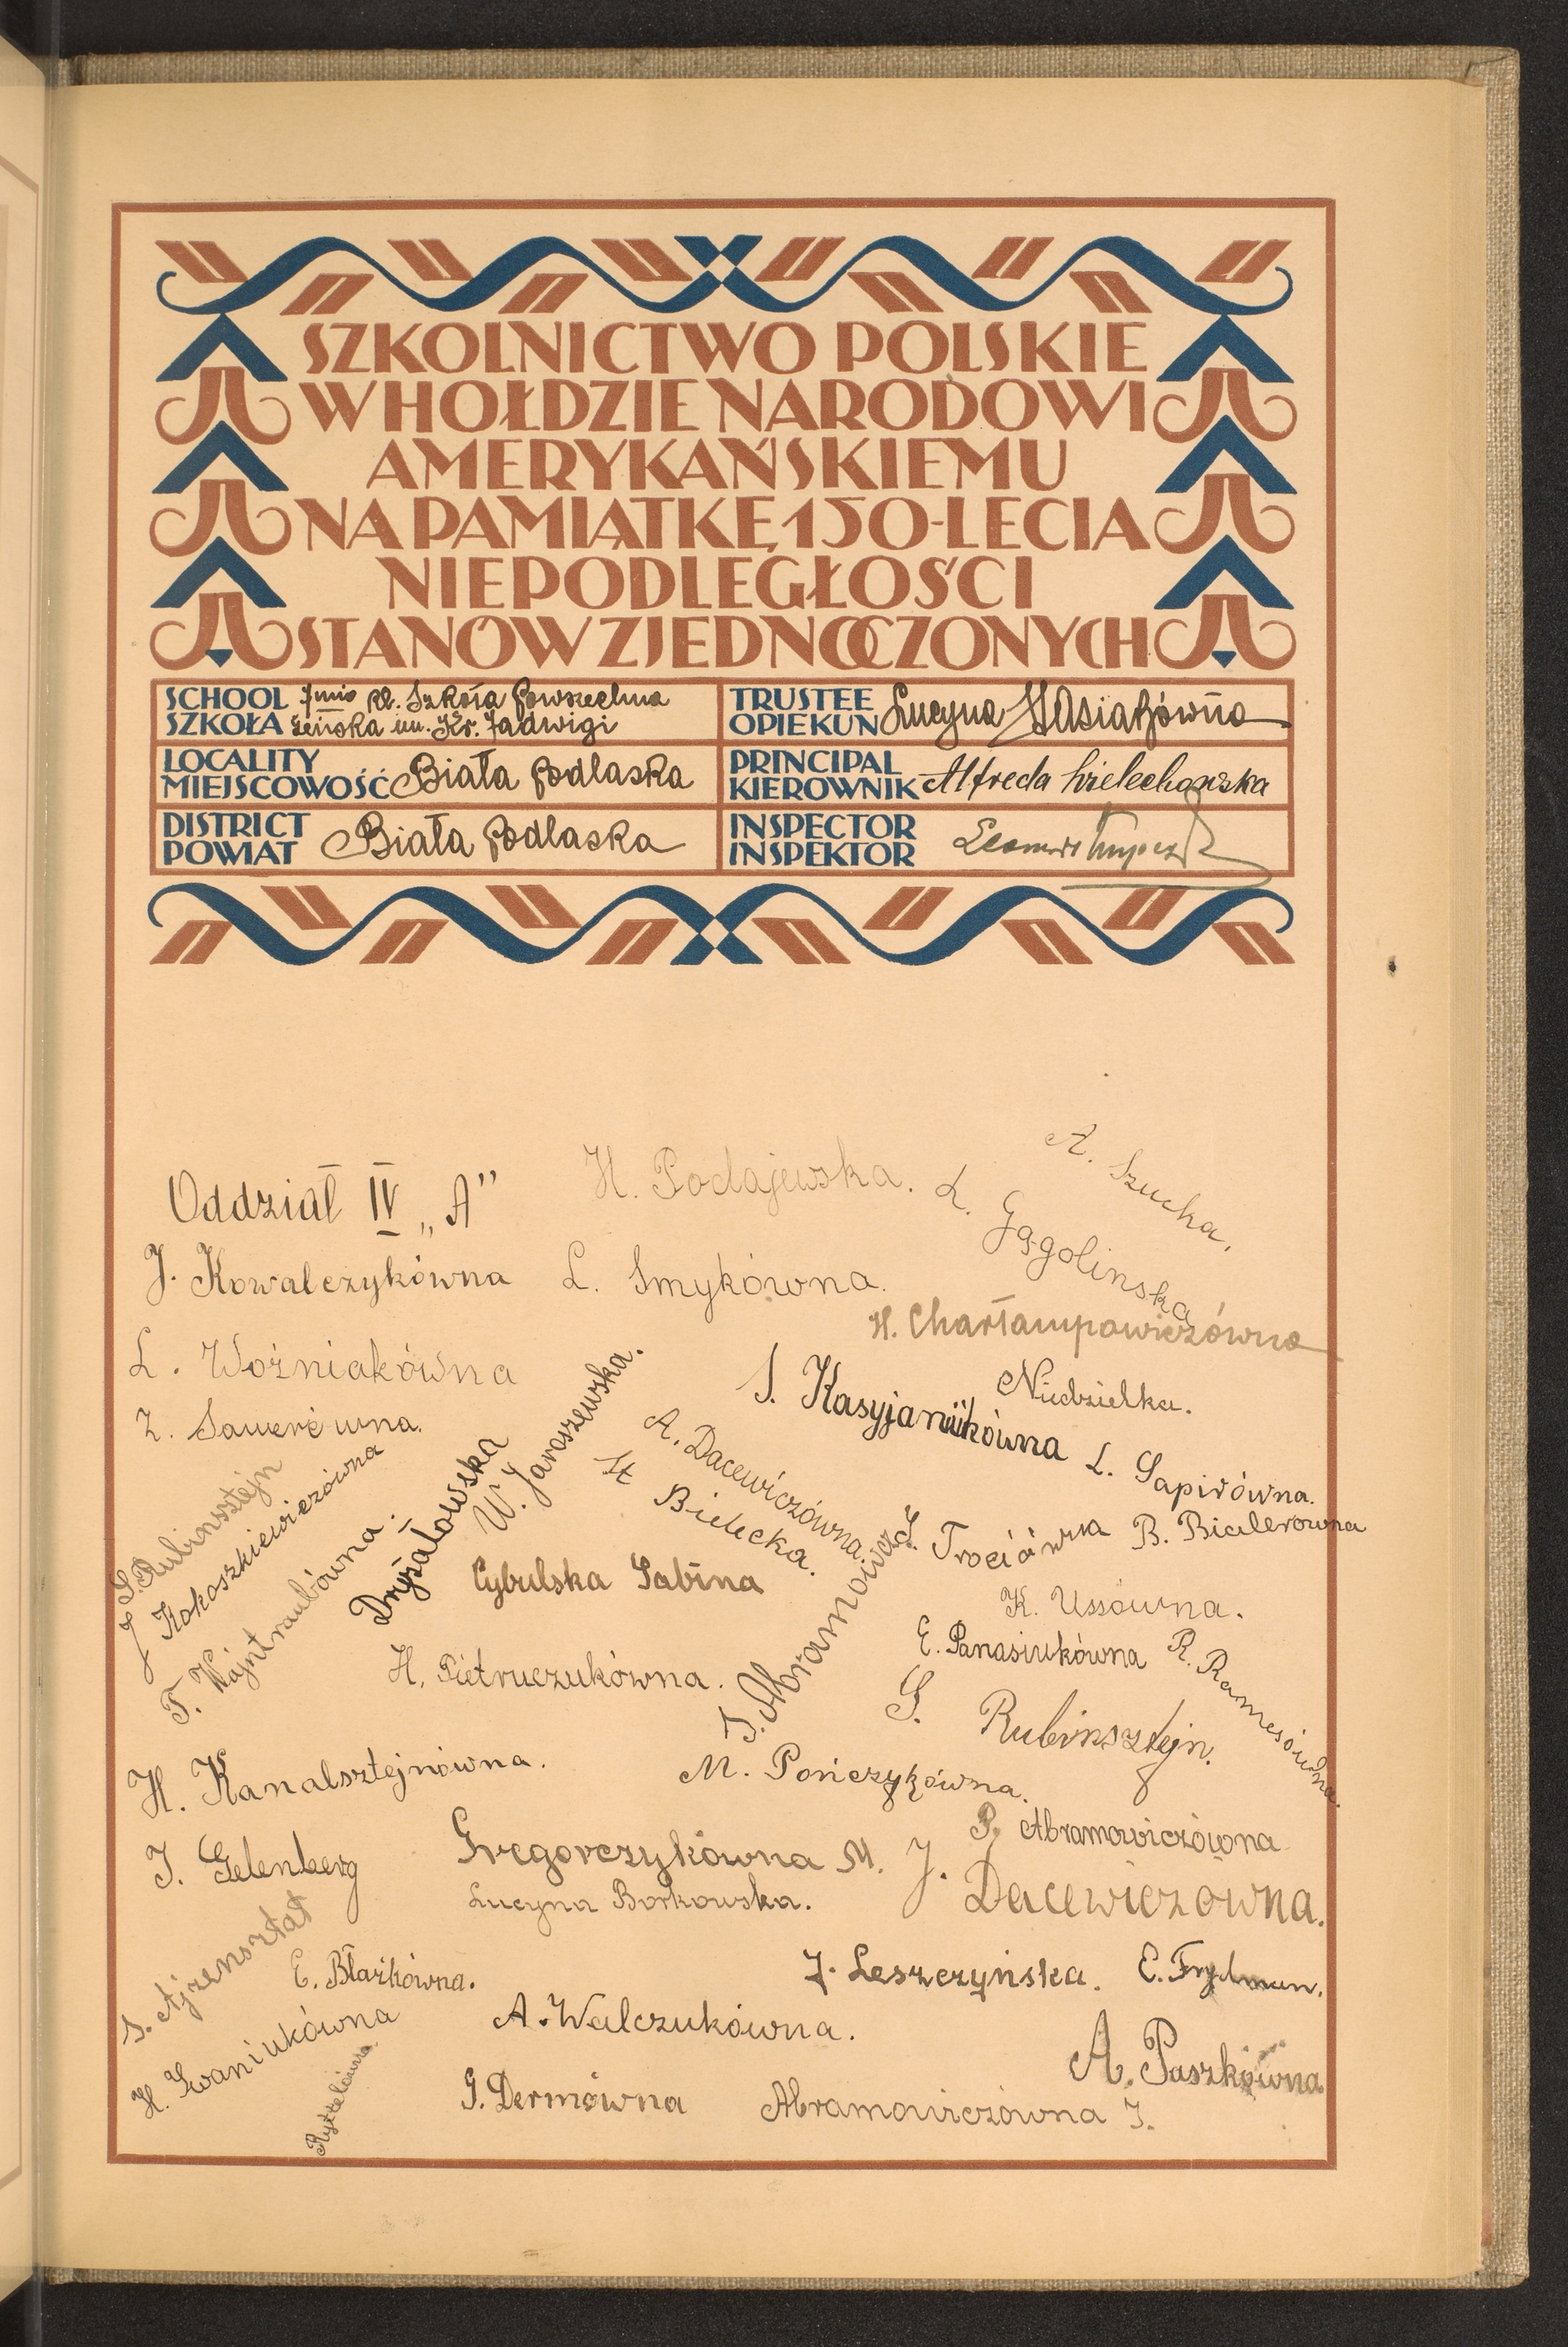 SZKOLNICTWO POLSKIE
W HOŁDZIE NARODOWI
AMERYKAŃSKIEMU
NA PAMIĄTKĘ 150-LECIA
NIEPODLEGŁOŚCI
STANÓW ZJEDNOCZONYCH
SCHOOL 7mio kl. Szkoła Powszechna
SZKOŁA żeńska im. Kr. Jadwigi
TRUSTEE
OPIEKUN Lucyna
LOCALITY
MIEJSCOWOŚĆ Biała Podlaska
PRINCIPAL
KIEROWNIK Alfreda
DISTRICT
POWIAT Biała Podlaska
INSPECTOR
INSPEKTOR
A. Szucha.
Oddział IV „A”
H. Podajewska.
L. Gągolinska
J. Kowalczykówna
L. Smykówna.
H. Charłampowiczówna
L. Woźniakówna
Niedzielka.
S. Kasyjaniukówna
Z. Sawerówna.
W. Jaroszewska.
A. Dacewiczówna.
St Bielecka.
L. Sapirówna.
S. Rubinsztejn
J Kokoszkiewiczówna
T. Wajntraubówna.
Dryżałowska
Cybulska Sabina
J. Trociówna
B. Bialerówna
K. Ussówna.
E. Panasiukówna
R. Ramesówna.
H. Pietruczukówna.
S. Abramowicz
S. Rubinsztejn.
H. Kanalsztejnówna.
M. Pończykówna.
P. Abramowiczówna
I. Gelenberg
Gregorczykówna M.
J. Dacewiczówna.
Lucyna Borkowska.
S. Ajzensztat
E. Błażkówna.
J. Leszczyńska.
E. Frydman.
H. Iwaniukówna
A. Walczukówna.
A. Paszkówna
Ryttelówna
G. Dermówna
Abramowiczówna J.